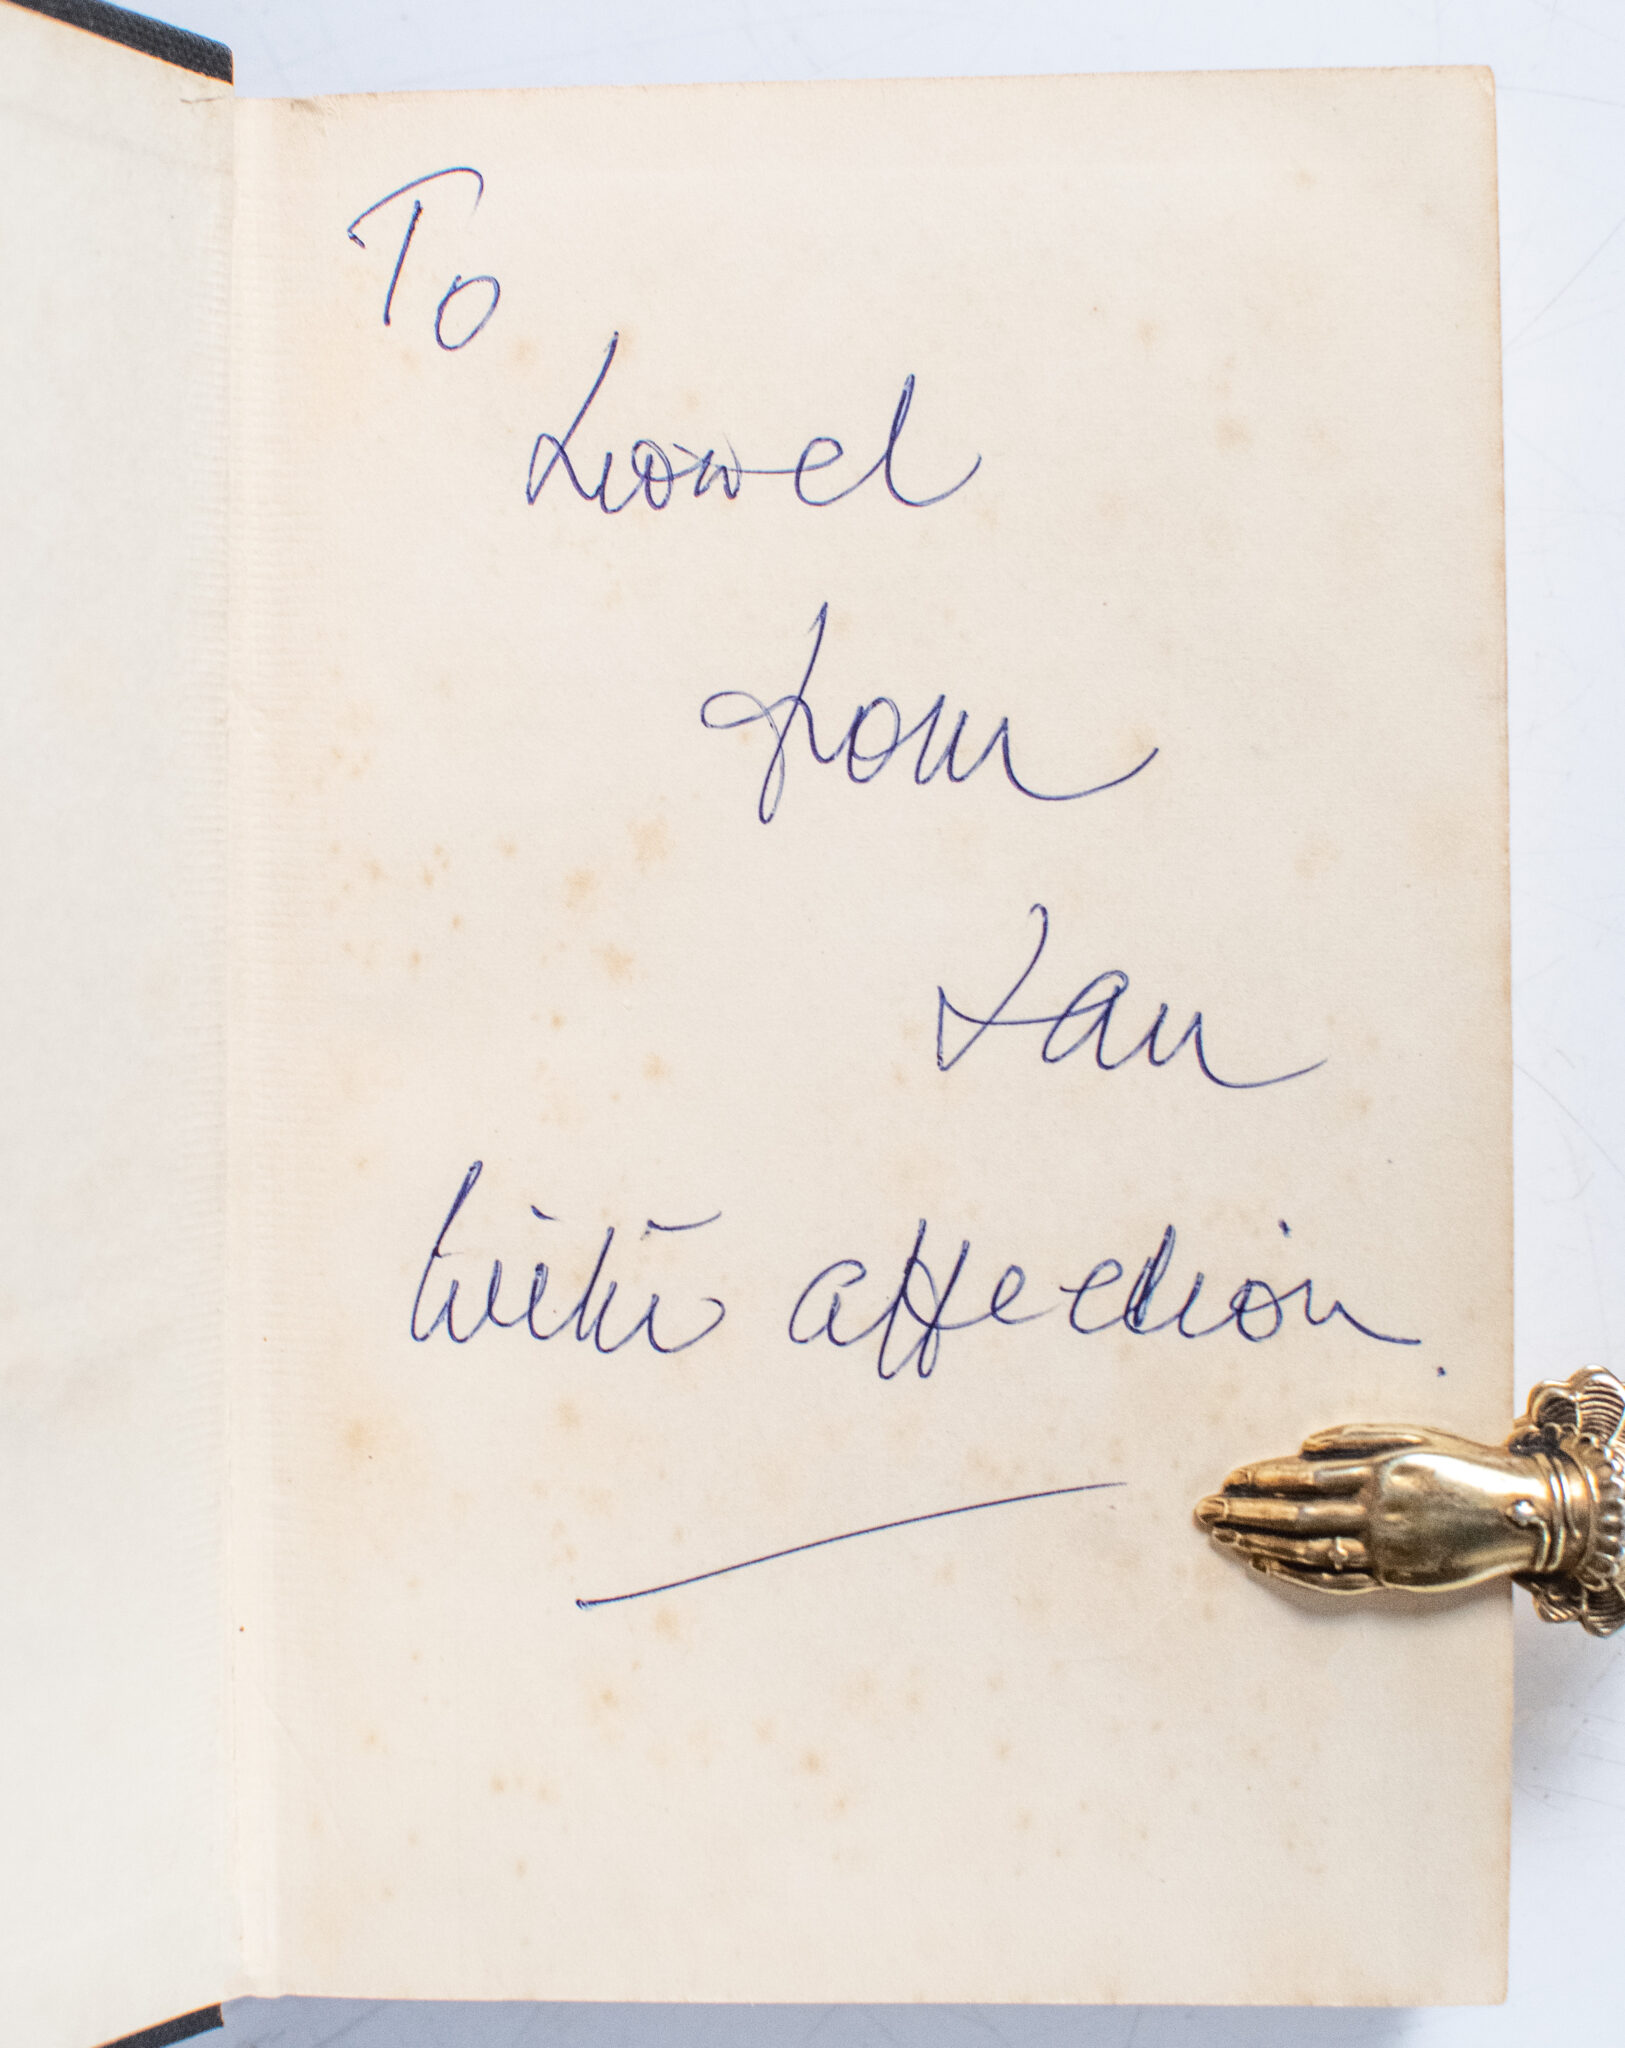 To
Lionel
from
Ian
with affection.